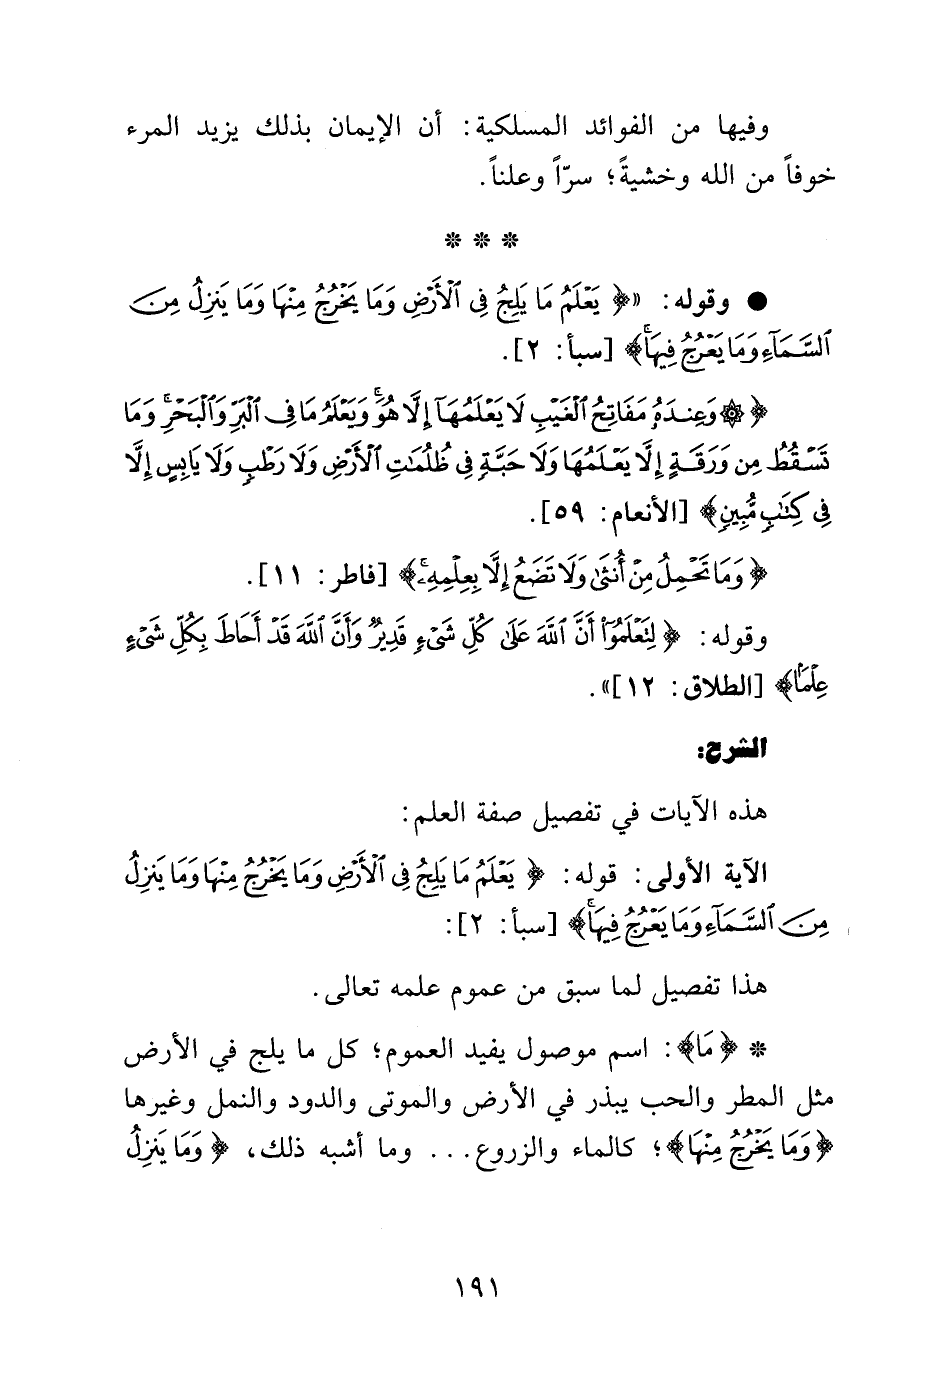 وفيها من الفوائد المسلكية: أن الإيمان بذلك يزيد المرء
خوفاً من الله وخشيةً؛ سرّاً وعلناً.
* * *
● وقوله: «﴿ يَعْلَمُ مَا يَلِجُ فِي ٱلْأَرْضِ وَمَا يَخْرُجُ مِنْهَا وَمَا يَنزِلُ مِنَ
ٱلسَّمَآءِ وَمَا يَعْرُجُ فِيهَاۚ﴾ [سبأ: ٢].
﴿ ۞ وَعِندَهُۥ مَفَاتِحُ ٱلْغَيْبِ لَا يَعْلَمُهَآ إِلَّا هُوَۚ وَيَعْلَمُ مَا فِى ٱلْبَرِّ وَٱلْبَحْرِۚ وَمَا
تَسْقُطُ مِن وَرَقَةٍ إِلَّا يَعْلَمُهَا وَلَا حَبَّةٍ فِى ظُلُمَٰتِ ٱلْأَرْضِ وَلَا رَطْبٍ وَلَا يَابِسٍ إِلَّا
فِى كِتَٰبٍ مُّبِينٍ﴾ [الأنعام: ٥٩].
﴿ وَمَا تَحْمِلُ مِنْ أُنثَىٰ وَلَا تَضَعُ إِلَّا بِعِلْمِهِۦۚ﴾ [فاطر: ١١].
وقوله: ﴿ لِتَعْلَمُوٓا۟ أَنَّ ٱللَّهَ عَلَىٰ كُلِّ شَىْءٍ قَدِيرٌ وَأَنَّ ٱللَّهَ قَدْ أَحَاطَ بِكُلِّ شَىْءٍ
عِلْمَۢا﴾ [الطلاق: ١٢]».
الشرح:
هذه الآيات في تفصيل صفة العلم:
الآية الأولى: قوله: ﴿ يَعْلَمُ مَا يَلِجُ فِى ٱلْأَرْضِ وَمَا يَخْرُجُ مِنْهَا وَمَا يَنزِلُ
مِنَ ٱلسَّمَآءِ وَمَا يَعْرُجُ فِيهَاۚ﴾ [سبأ: ٢]:
هذا تفصيل لما سبق من عموم علمه تعالى.
* ﴿مَا﴾: اسم موصول يفيد العموم؛ كل ما يلج في الأرض
مثل المطر والحب يبذر في الأرض والموتى والدود والنمل وغيرها
﴿وَمَا يَخْرُجُ مِنْهَا﴾؛ كالماء والزروع... وما أشبه ذلك، ﴿وَمَا يَنزِلُ
١٩١